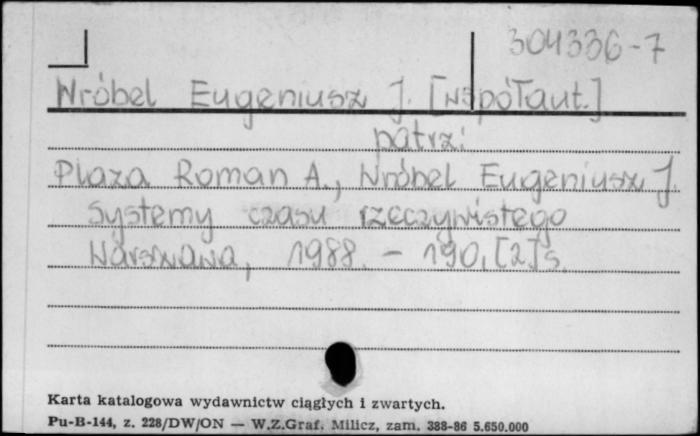 304336-7
Wróbel Eugeniusz J. [współaut.]
patrz:
Plaza Roman A., Wróbel Eugeniusz J.
Systemy czasu rzeczywistego
Warszawa, 1988. - 190, [2] s.
Karta katalogowa wydawnictw ciągłych i zwartych.
Pu-B-144, z. 228/DW/ON — W.Z.Graf. Milicz, zam. 388-86 5.650.000